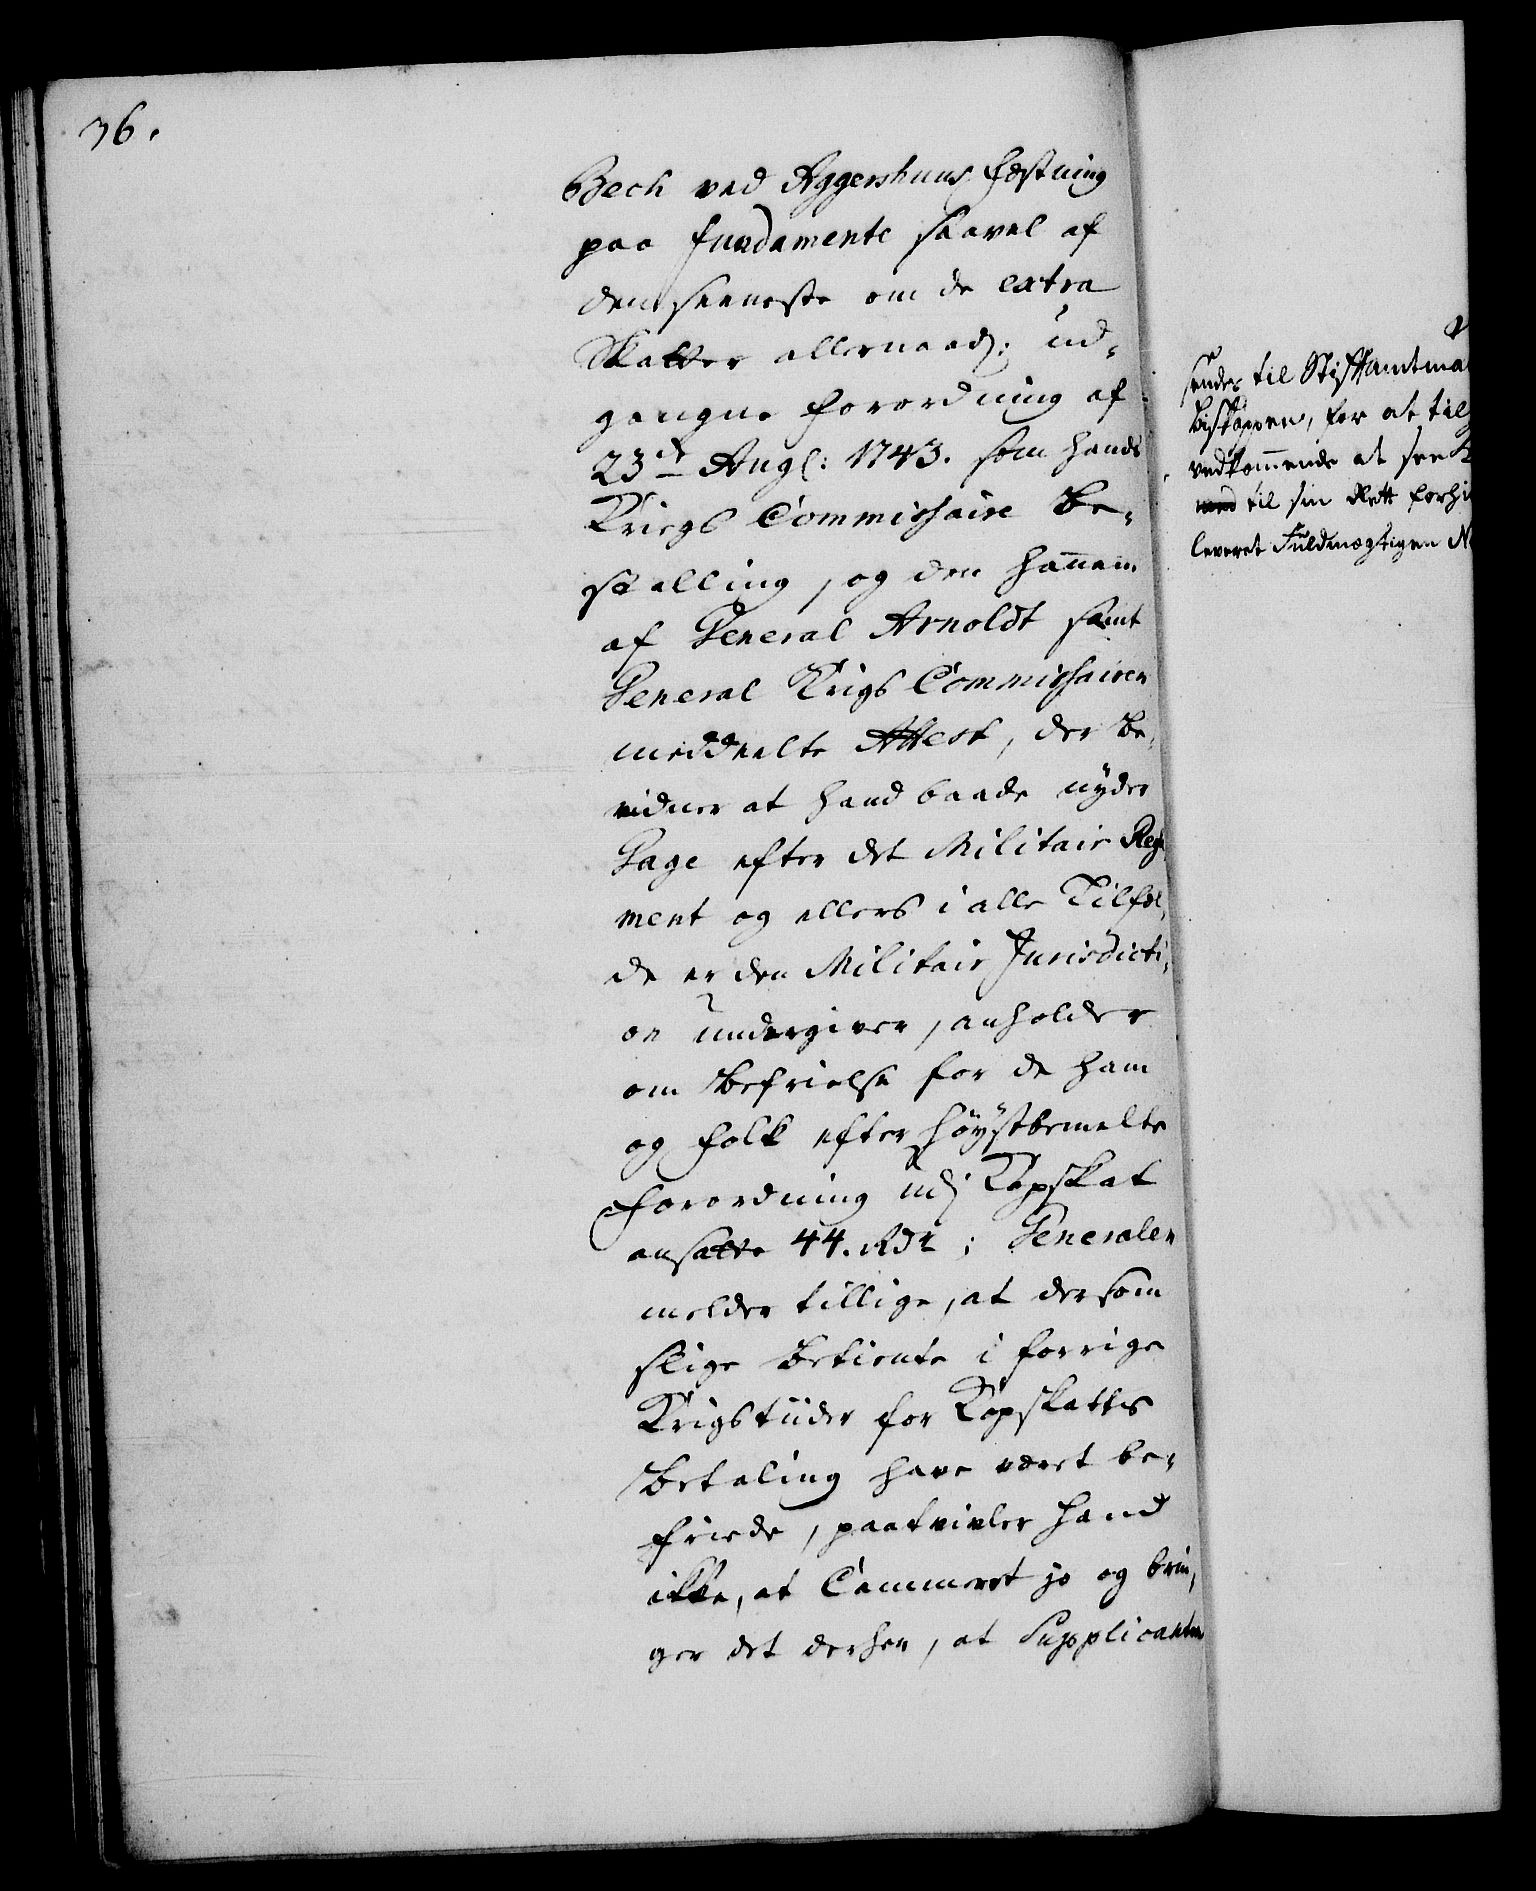 36.
Bech ved Aggershuus Fæstning
paa fundamente saavel af
den seeneste om de extra
Skatter allernaad: ud-
gangne Forordning af
23de Aug: 1743. som hands
Kriegs Commissaire Be-
stalling, og den hannem
af General Arnoldt samt
General Krigs Commissairen
meddeelte Attest, der be-
vidner at hand baade nyder
Gage efter det Militair Regle
ment og ellers i alle Tilfæl,
de er den Militair Jurisdicti,
on undergiven, anholder
om Befrielse for de ham
og Folk efter høystbemelte
Forordning udj Kopskat
ansatte 44. Rdr; Generalen
melder tillige, at dersom
slige Betiente i forrige
Krigstiider for Kopskattes
Betaling have været be-
friede, paatvivler hand
ikke, at Cammeret jo og brin,
ger det derhen, at Supplicanten
sendes til Stiftamtma
Biskoppen, for at til
vedkommende at see
til sin Rett forhi
leveret Fuldmægtigen